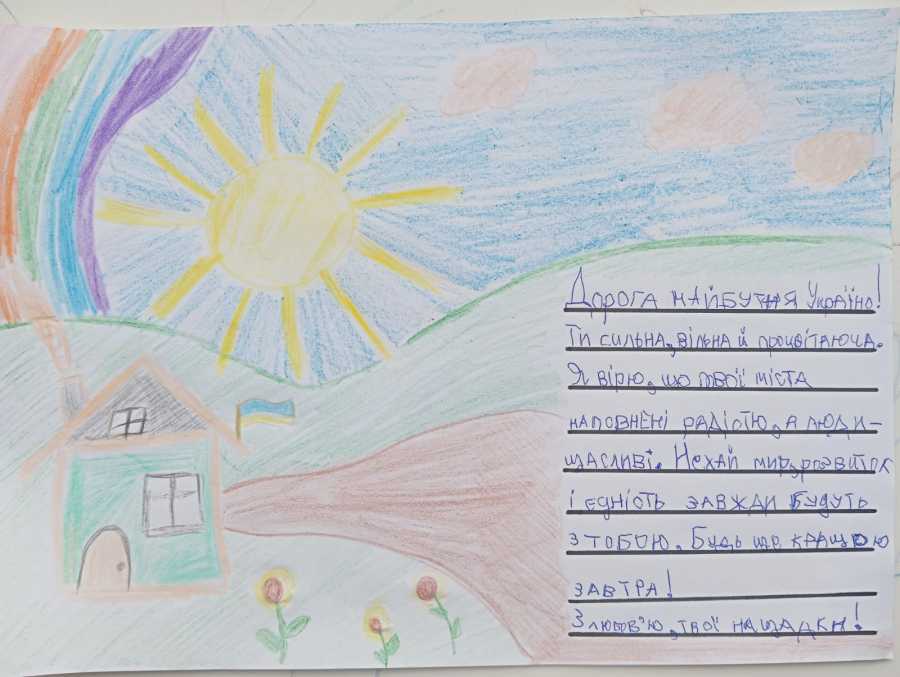 Дорога майбутня Україно!
Ти сильна, вільна й процвітаюча.
Я вірю, що твої міста
наповнені радістю, а люди –
щасливі. Нехай мир, розвиток
і єдність завжди будуть
з тобою. Будь ще кращою
завтра!
З любов'ю, твої нащадки!